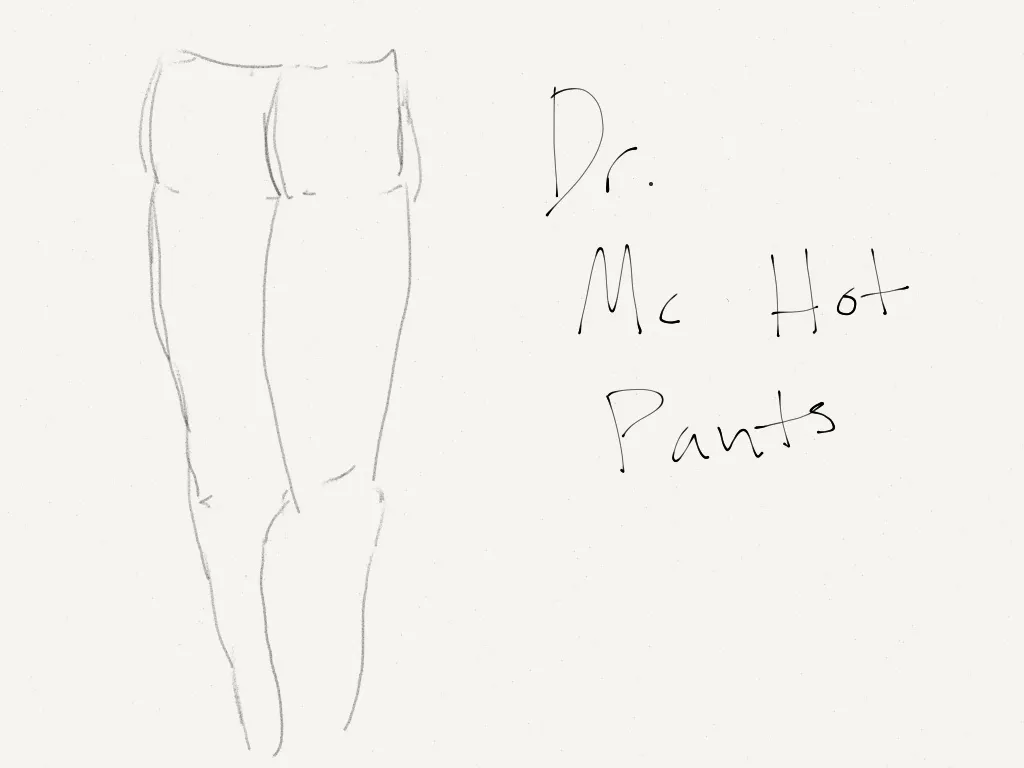 Dr.
Mc Hot
Pants